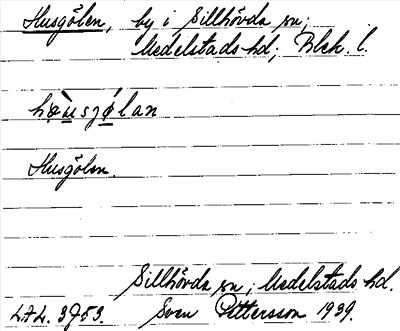 Husgölen, by i Sillhövda sn;
Medelstads hd; Blek. l.
hæ̀usjǿlan
Husgölen.
Sillhövda sn; Medelstads hd.
L.A.L. 3953. Sven Pettersson 1939.